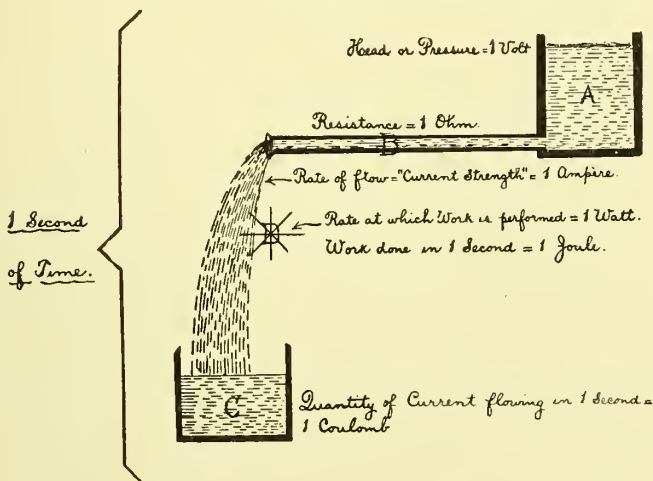 Head or Pressure = 1 Volt
A
Resistance = 1 Ohm.
B
Rate of flow = "Current Strength" = 1 Ampire.
1 Second
of Time.
Rate at which Work is performed = 1 Watt.
D
Work done in 1 Second = 1 Joule.
C
Quantity of Current flowing in 1 Second =
1 Coulomb